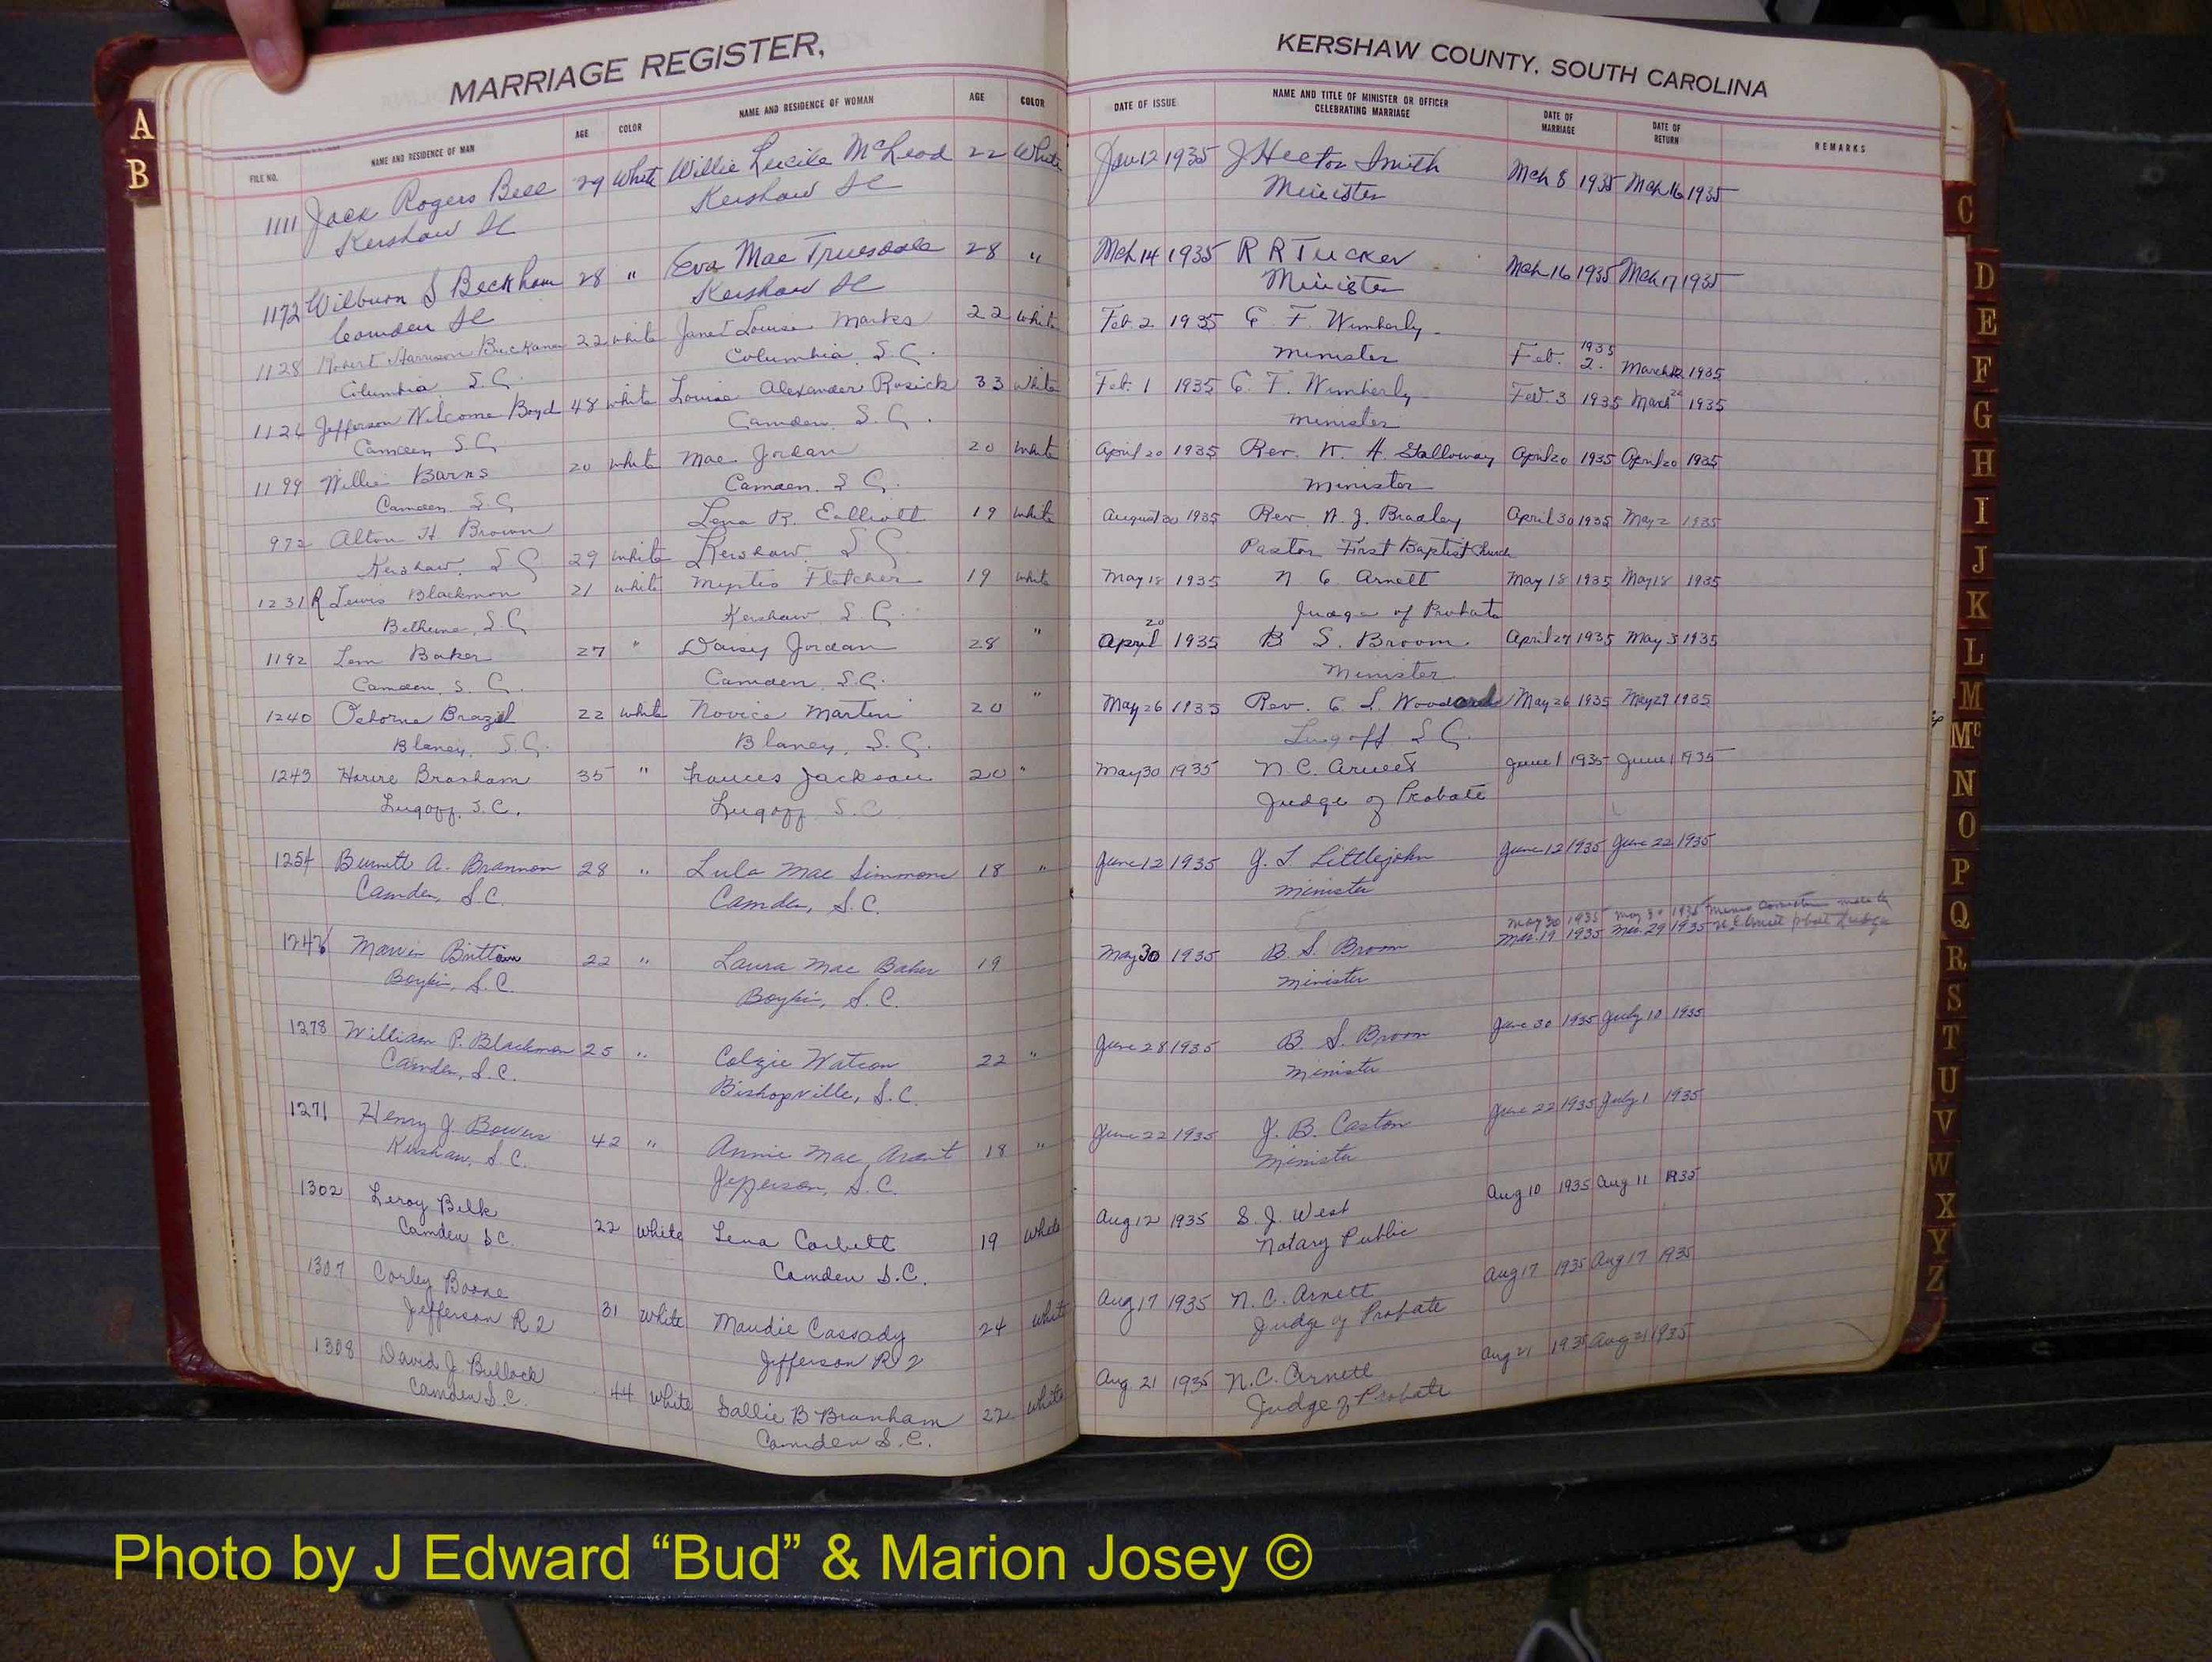 MARRIAGE REGISTER,
KERSHAW COUNTY, SOUTH CAROLINA
FILE NO. NAME AND RESIDENCE OF MAN AGE COLOR NAME AND RESIDENCE OF WOMAN AGE COLOR DATE OF ISSUE NAME AND TITLE OF MINISTER OR OFFICER CELEBRATING MARRIAGE DATE OF MARRIAGE DATE OF RETURN REMARKS
1111 Jack Rogers Bell 29 White Willie Lucile McLeod 22 White Jan 12 1935 J Hector Smith Mch 8 1935 Mch 16 1935
Kershaw SC Kershaw SC Minister
1172 Wilburn S Beckham 28 " Eva Mae Truesdale 28 " Mch 14 1935 R R Tucker Mch 16 1935 Mch 17 1935
Camden SC Kershaw SC Minister
1128 Robert Harrison Buckanan 22 white Janet Louise Marks 22 white Feb. 2 1935 C. F. Wimberly Feb. 2. 1935 March 1935
Columbia, S.C. Columbia, S.C. minister
Jefferson Welcome Boyd 48 white Louise Alexander Rusick 33 white Feb. 1 1935 C. F. Wimberly Feb. 3 1935 March 22 1935
Camden, S.C. Camden, S.C. minister
1199 Willie Barns 20 white Mae Jordan 20 white April 20 1935 Rev. H. Galloway April 20 1935 April 20 1935
Camden, S.C. Camden, S.C. minister
972 Alton H Brown Lena R. Elliott 19 white August 30 1935 Rev. J. Bradley April 30 1935 May 2 1935
Kershaw, S.C. 29 white Kershaw, S.C. Pastor First Baptist Church
1231 R Lewis Blackmon 21 white Myrtis Fletcher 19 white May 18 1935 N C Arnett May 18 1935 May 18 1935
Bethune, S.C. Kershaw, S.C. Judge of Probate
1192 Lem Baker 27 " Daisy Jordan 28 " April 20 1935 B. S. Broom April 27 1935 May 3 1935
Camden, S.C. Camden, S.C. Minister
1240 Osborne Brazel 22 white Novice Martin 20 " May 26 1935 Rev. C. L. Woodard May 26 1935 May 29 1935
Blaney, S.C. Blaney, S.C. Lugoff S.C.
1243 Branham 35 " Frances Jackson 20 " May 30 1935 N. C. Arnett June 1 1935 June 1 1935
Lugoff, S.C. Lugoff S.C. Judge of Probate
1254 Burnett A. Brannon 28 " Lula Mae Simmons 18 " June 12 1935 J. T. Littlejohn June 12 1935 June 22 1935
Camden, S.C. Camden, S.C. minister
May 30 1935 May 30 1935 made by
Mar. 19 1935 Mar. 29 1935 N C Arnett Judge
1246 Brittain 22 " Laura Mae Baker 19 May 30 1935 B. S. Broom
Boykin, S.C. Boykin, S.C. minister
1278 William P. Blackmon 25 " Colzie Watson 22 " June 28 1935 B. S. Broom June 30 1935 July 10 1935
Camden, S.C. Bishopville, S.C. minister
1271 Henry J. Bowers 42 " Annie Mae Arant 18 " June 22 1935 J. B. Caston June 22 1935 July 1 1935
Kershaw, S.C. Jefferson, S.C. minister
1302 Leroy Belk 22 white Lena Corbett 19 white Aug 12 1935 S. J. West Aug 10 1935 Aug 11 1935
Camden S.C. Camden S.C. Notary Public
1307 Corley Boone 31 white Maudie Cassady 24 white Aug 17 1935 N. C. Arnett Aug 17 1935 Aug 17 1935
Jefferson R 2 Jefferson R 2 Judge of Probate
1308 David J. Bullock 44 white Sallie B Branham 22 white Aug. 21 1935 N. C. Arnett Aug 21 1935 Aug 21 1935
Camden S.C. Camden S.C. Judge of Probate
A
B
C
D
E
F
G
H
I
J
K
L
M
Mc
N
O
P
Q
R
S
T
U
V
W
X
Y
Z
Photo by J Edward “Bud” & Marion Josey ©